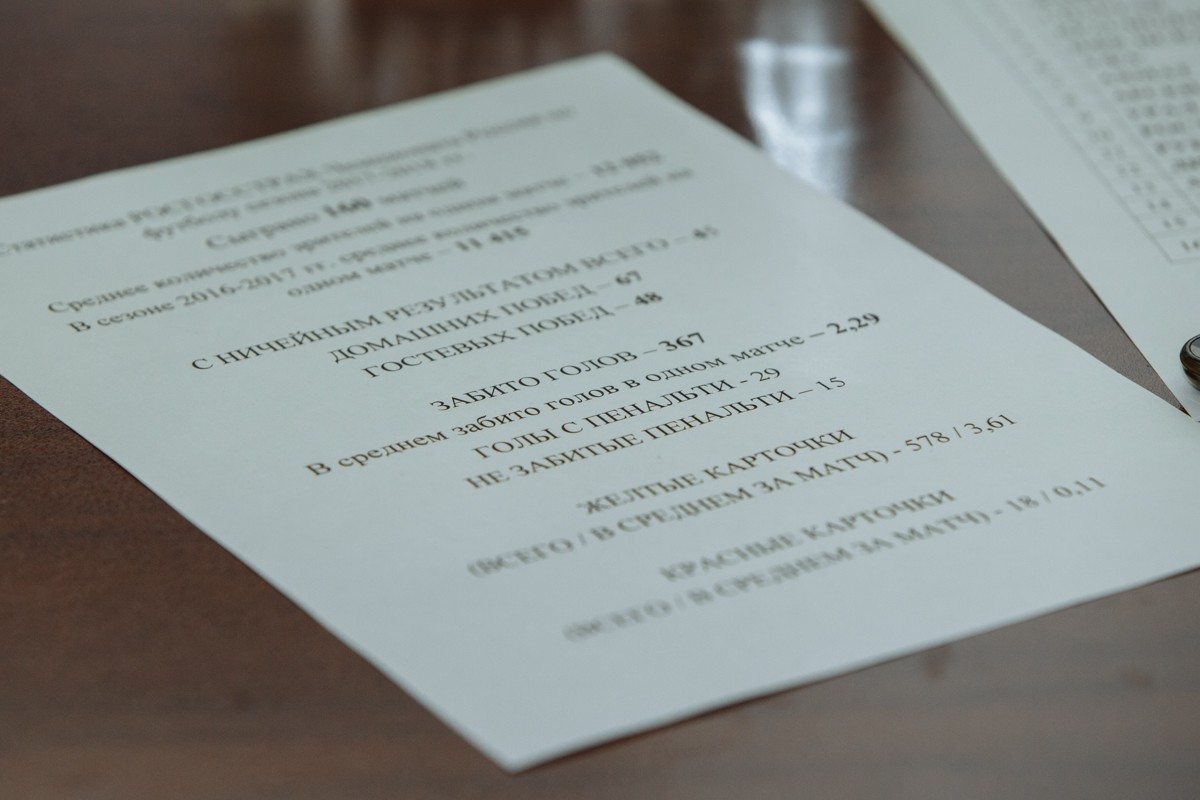 Статистика РОСГОССТРАХ Чемпионата России по
футболу сезона 2017-2018 гг.
Сыграно 160 матчей
Среднее количество зрителей на одном матче –
В сезоне 2016-2017 гг. среднее количество зрителей на
одном матче – 11 415
С НИЧЕЙНЫМ РЕЗУЛЬТАТОМ ВСЕГО – 45
ДОМАШНИХ ПОБЕД – 67
ГОСТЕВЫХ ПОБЕД – 48
ЗАБИТО ГОЛОВ – 367
В среднем забито голов в одном матче – 2,29
ГОЛЫ С ПЕНАЛЬТИ - 29
НЕ ЗАБИТЫЕ ПЕНАЛЬТИ – 15
ЖЕЛТЫЕ КАРТОЧКИ
(ВСЕГО / В СРЕДНЕМ ЗА МАТЧ) - 578 / 3,61
КРАСНЫЕ КАРТОЧКИ
(ВСЕГО / В СРЕДНЕМ ЗА МАТЧ) - 18 / 0,11